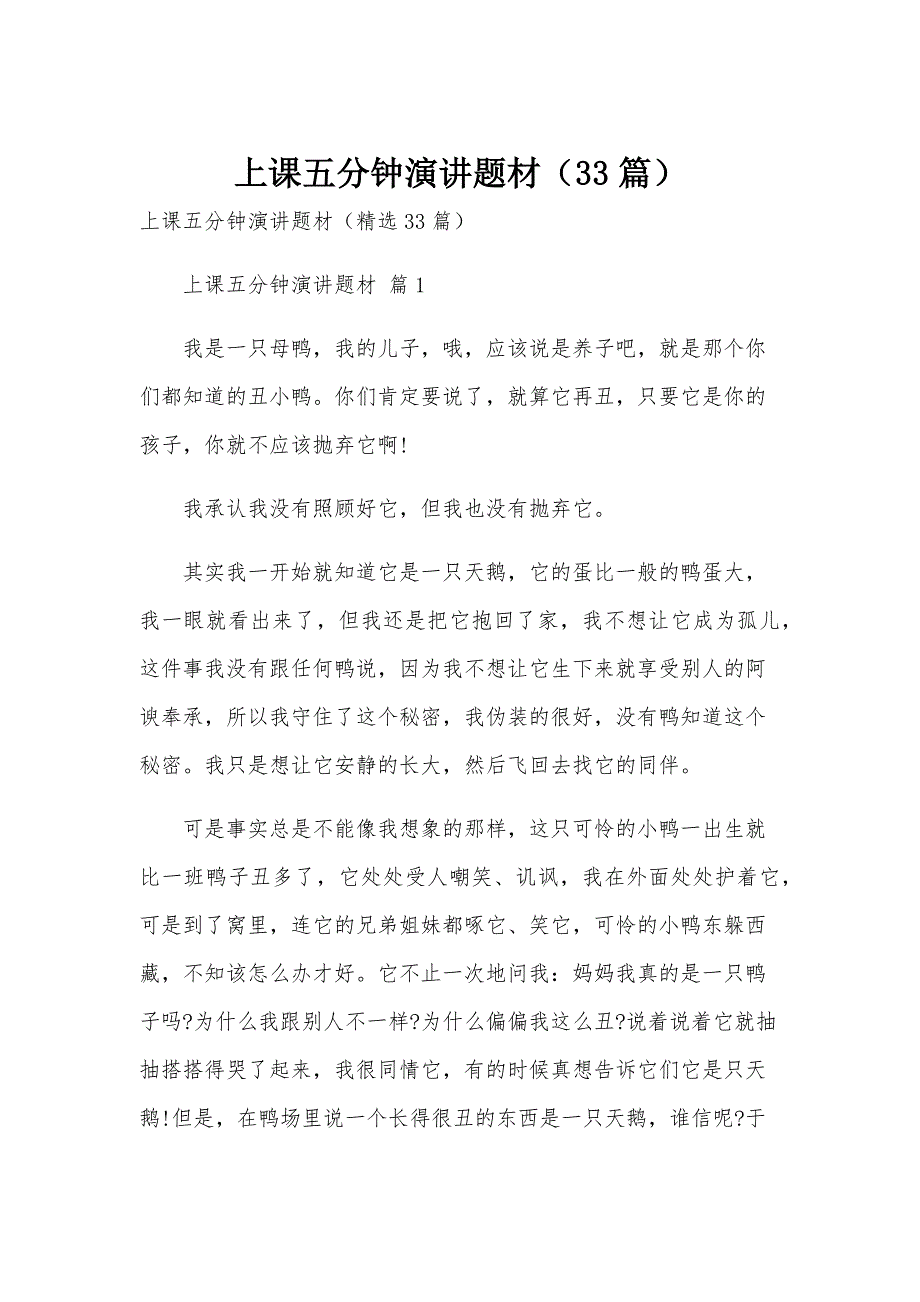 上课五分钟演讲题材（33篇）
上课五分钟演讲题材（精选33篇）
上课五分钟演讲题材 篇1
我是一只母鸭，我的儿子，哦，应该说是养子吧，就是那个你
们都知道的丑小鸭。你们肯定要说了，就算它再丑，只要它是你的
孩子，你就不应该抛弃它啊!
我承认我没有照顾好它，但我也没有抛弃它。
其实我一开始就知道它是一只天鹅，它的蛋比一般的鸭蛋大，
我一眼就看出来了，但我还是把它抱回了家，我不想让它成为孤儿，
这件事我没有跟任何鸭说，因为我不想让它生下来就享受别人的阿
谀奉承，所以我守住了这个秘密，我伪装的很好，没有鸭知道这个
秘密。我只是想让它安静的长大，然后飞回去找它的同伴。
可是事实总是不能像我想象的那样，这只可怜的小鸭一出生就
比一班鸭子丑多了，它处处受人嘲笑、讥讽，我在外面处处护着它，
可是到了窝里，连它的兄弟姐妹都啄它、笑它，可怜的小鸭东躲西
藏，不知该怎么办才好。它不止一次地问我：妈妈我真的是一只鸭
子吗?为什么我跟别人不一样?为什么偏偏我这么丑?说着说着它就抽
抽搭搭得哭了起来，我很同情它，有的时候真想告诉它们它是只天
鹅!但是，在鸭场里说一个长得很丑的东西是一只天鹅，谁信呢?于